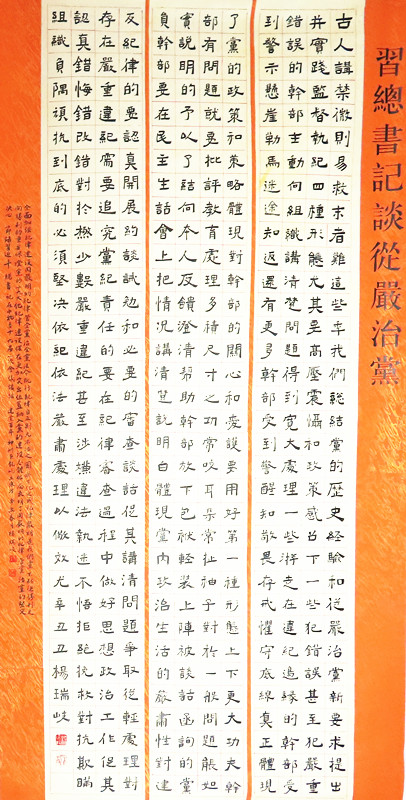 習總書記談從嚴治黨
古人諱禁微則易救末者難這些年我們總結黨的歷史經驗和從嚴治黨新要求提出
并實踐監督執紀四種形態尤其要高壓震懾和政策感召下一些犯錯誤甚至犯嚴重
錯誤的幹部主動向組織講清楚問題得到寬大處理一些游走在違紀邊緣的幹部受
到警示懸崖勒馬迷途知返還有更多幹部受到警醒知敬畏存戒懼守底線真正體現
了黨的政策和策略體現對幹部的關心和愛護要用好第一種形態上下更大功夫幹
部有問題就要批評教育多待尺寸之功常咬耳朵常扯袖子對於一般問題能如
實說明的予以了結向本人反饋澄清幫助幹部放下包袱輕裝上陣被談話函詢的黨
員幹部要在民主生活會上把情況講清楚說明白體現黨內政治生活的嚴肅性對違
反紀律的要認真開展約談誡勉和必要的審查談話促其講清問題爭取從輕處理對
存在嚴重違紀需要追究黨紀責任的要在紀律審查過程中做好思想政治工作促其
認真錯悔錯改錯對於極少數嚴重違紀甚至涉嫌違法執迷不悟拒絕挽救對抗欺瞞
組織負隅頑抗到底的必須堅決依紀依法嚴肅處理以儆效尤辛丑楊瑞岐